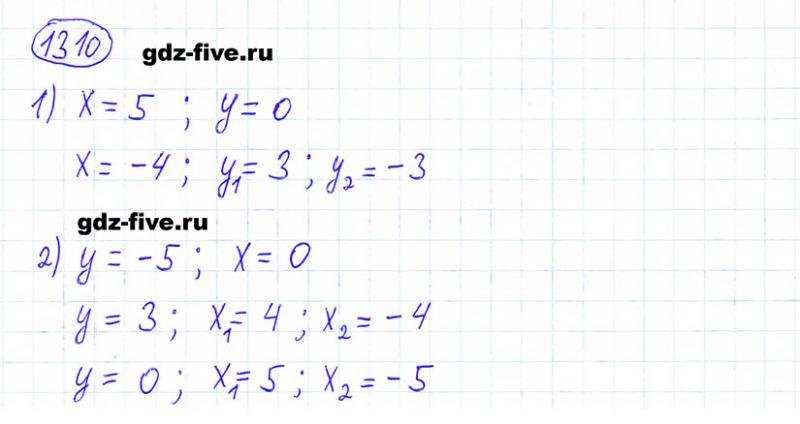 1310 gdz-five.ru
1) x = 5 ; y = 0
x = -4 ; y₁ = 3 ; y₂ = -3
gdz-five.ru
2) y = -5 ; x = 0
y = 3 ; x₁ = 4 ; x₂ = -4
y = 0 ; x₁ = 5 ; x₂ = -5